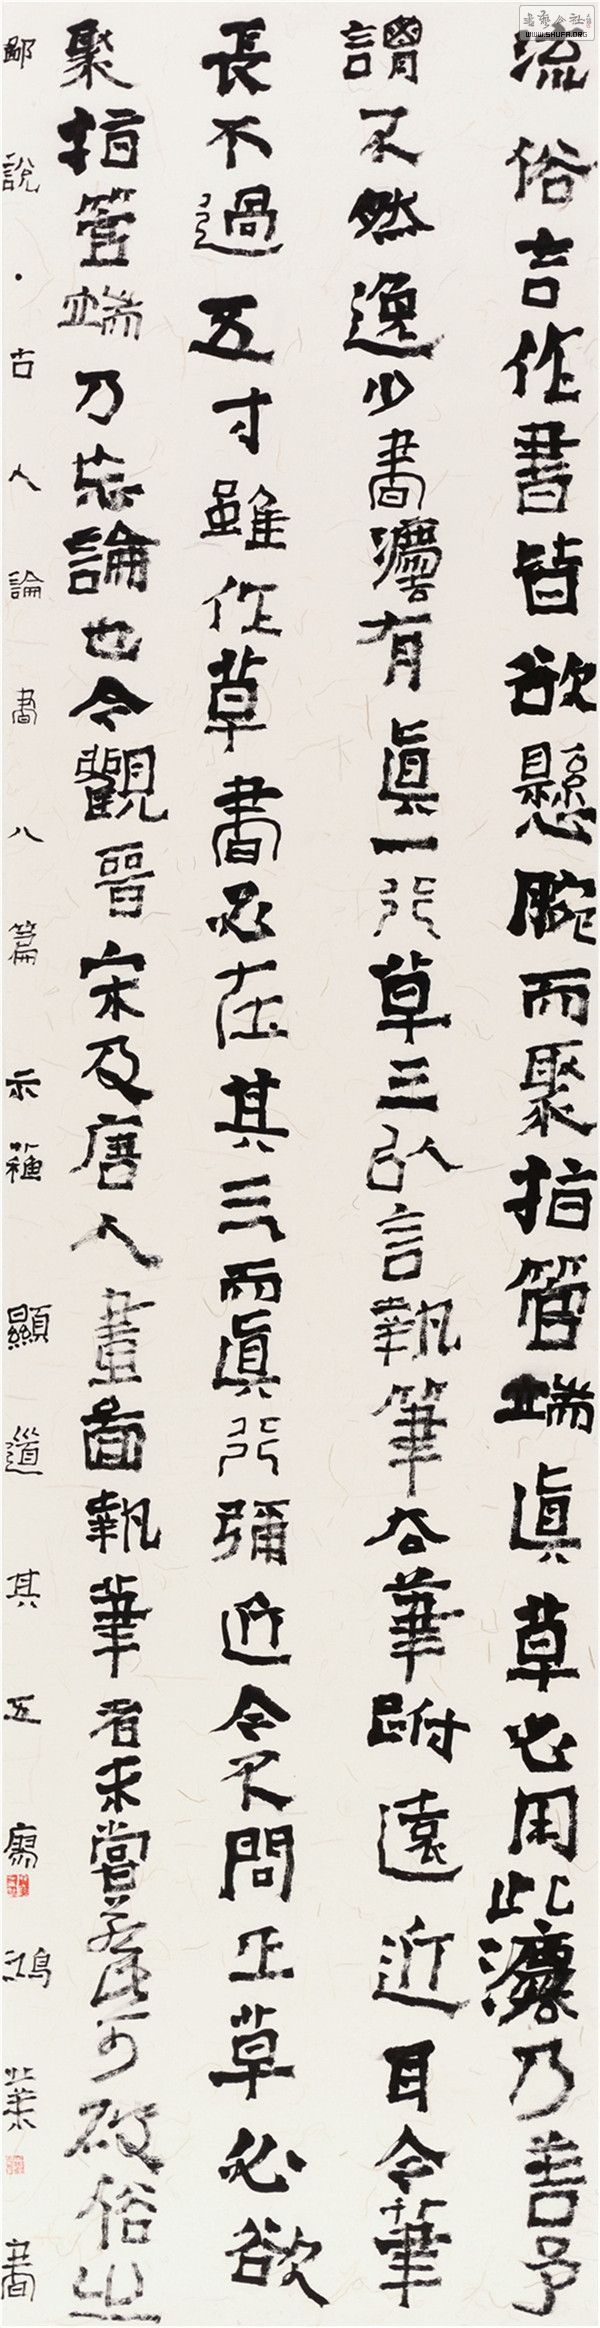 流俗言作書皆欲懸腕而聚指管端眞草必用此灋乃善予
謂不然逸少書灋有眞一行草三以言執筆去筆跗遠近耳今筆
長不過五寸雖作草書必在其三而眞行彌近今不問正草必欲
聚指管端乃妄論也今觀晉宋及唐人畫圖執筆者未嘗若此可破俗之
鄙說·古人論書八篇示蘓顯道其五 鴻業書
書藝公社
WWW.SHUFA.ORG